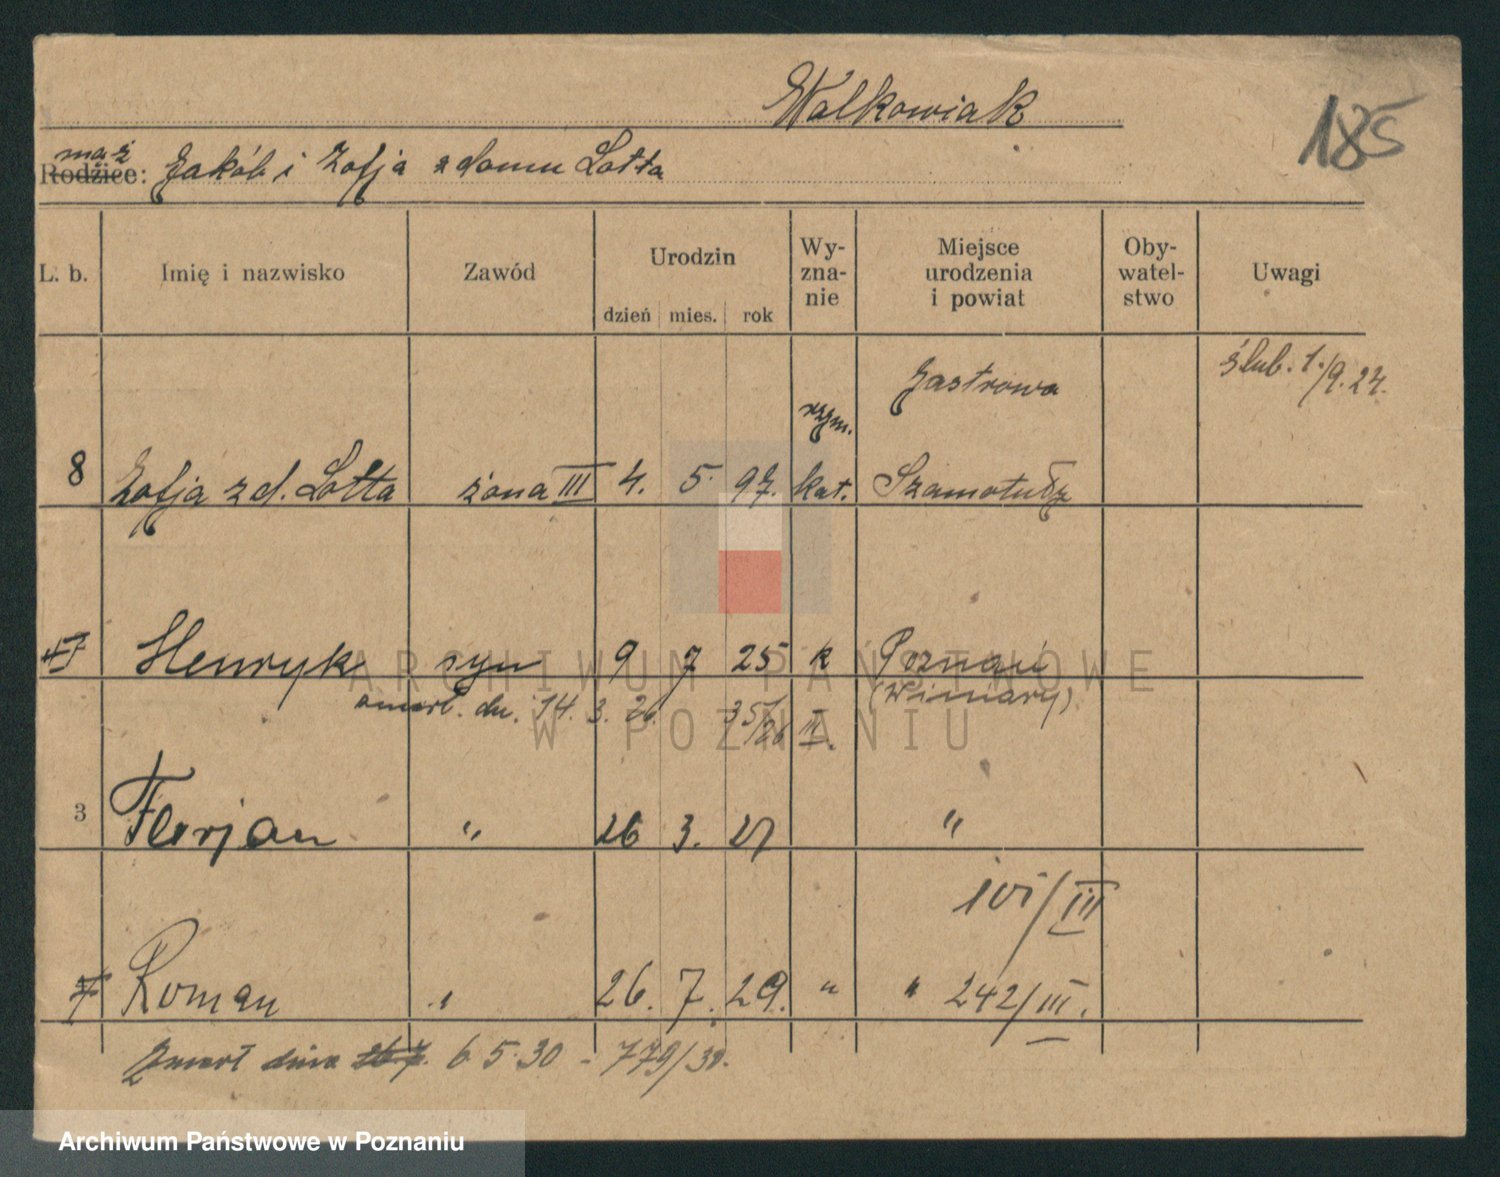 Walkowiak
185
mąż
Rodzice: Jakób i Zofja z domu Lotta
L. b. Imię i nazwisko Zawód Urodzin dzień mies. rok Wy-zna-nie Miejsce urodzenia i powiat Oby-watel-stwo Uwagi
Jastrowa ślub. 1./9.24.
rzym.
8 Zofja z d. Lotta żona III 4. 5. 97. kat. Szamotuły
Henryk syn 9 7 25 k Poznań
(Winiary)
zmarł. dn. 14. 3. 26. 35/26 II.
3 Florjan " 26 3. 27 "
101/III
Roman " 26. 7. 29. " " 242/III.
Zmarł dnia 6 5. 30 - 779/30.
ARCHIWUM PAŃSTWOWE
W POZNANIU
Archiwum Państwowe w Poznaniu